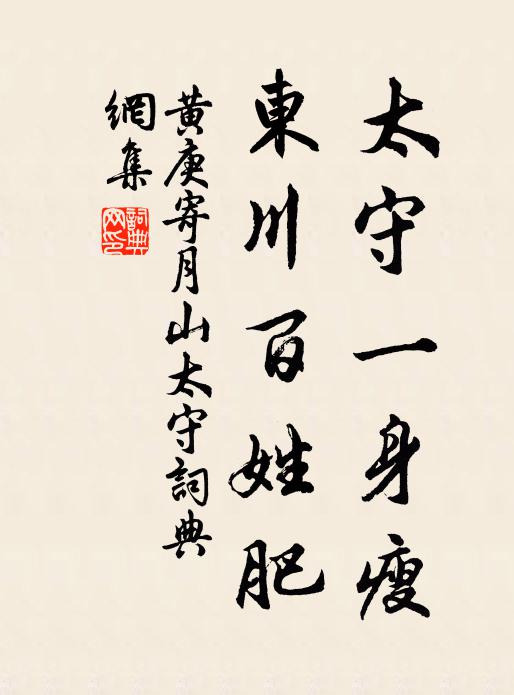 太守一身瘦
東川百姓肥
黄庚寄月山太守詞典
網集
詞典
网印